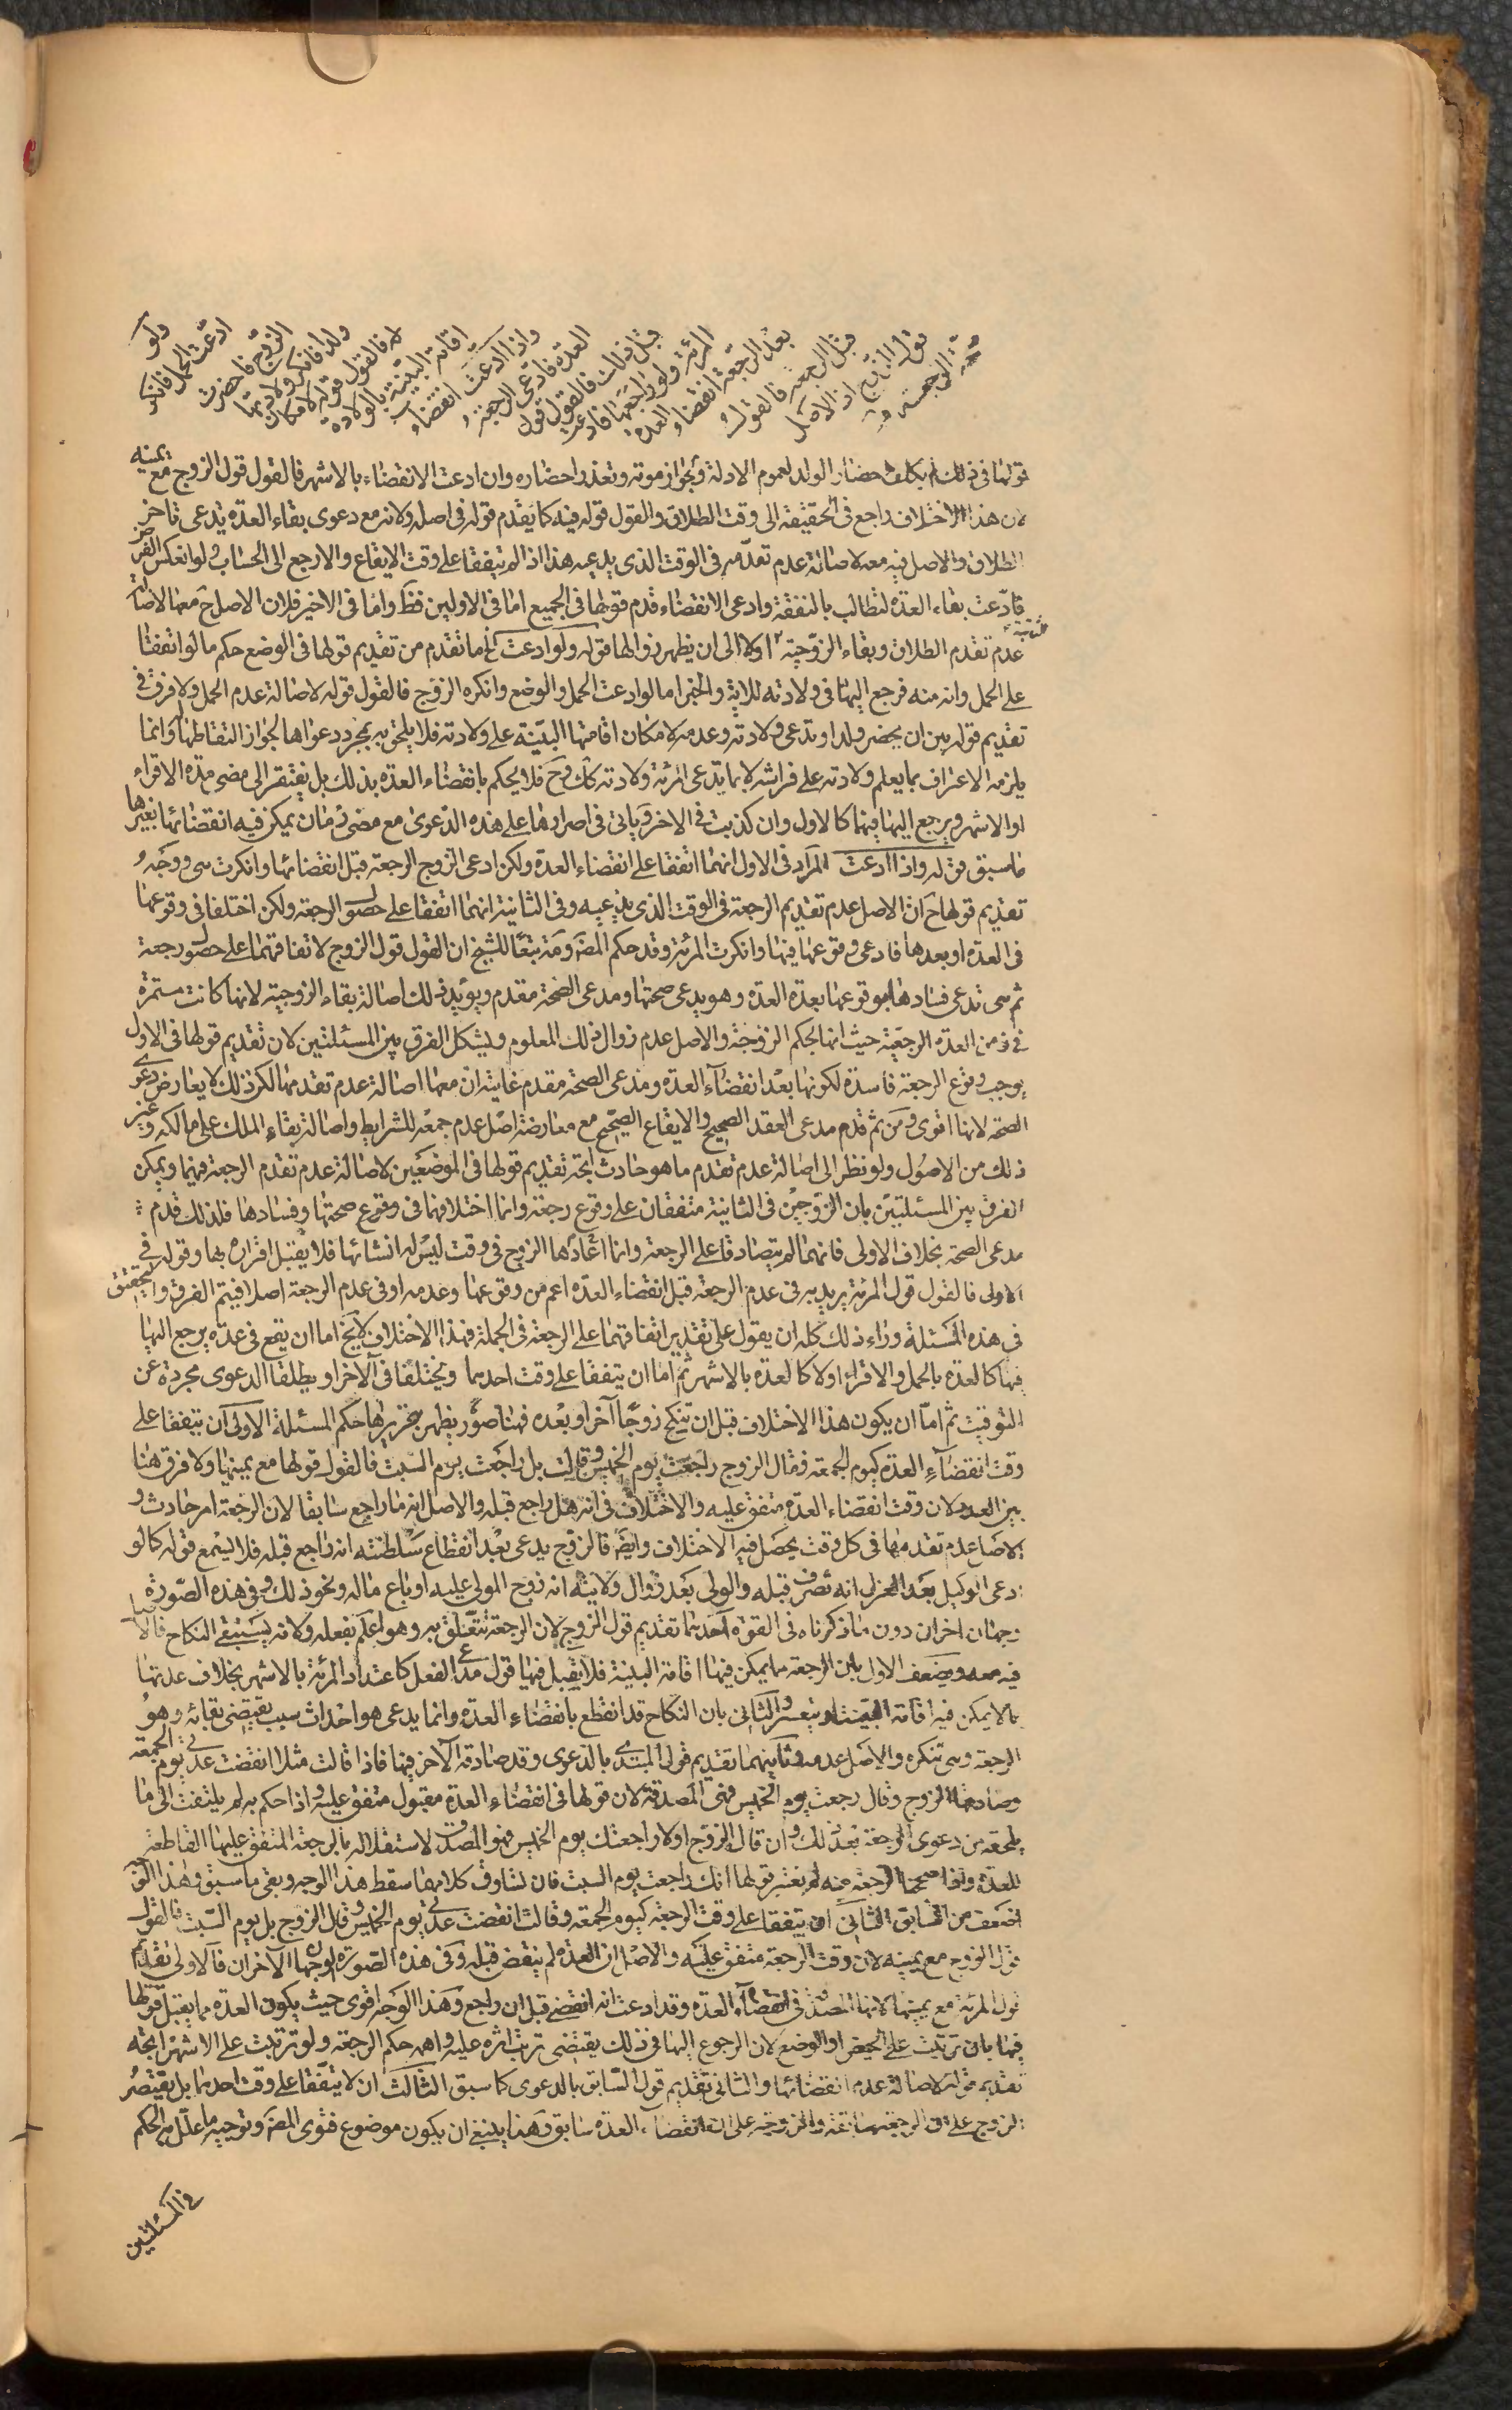 ولو
ادعت الحمل فانكر
الزوج فاحضرت
ولدا فانكر ولادتها
له فالقول قوله لامكان
اقامة البينة بالولادة
واذا ادعت انقضاء
العدة فادعى الرجعة
قبل ذلك فالقول قول
المرئة ولو راجعها فادعت
بعد الرجعة انقضاء العدة
قبل الرجعة فالقول
قول الزوج اذ الاصل
صحة الرجعة
قولها فى ذلك لم يكلف احضار الولد لعموم الادلة ولجواز موته وتعذر احضاره وان ادعت الانقضاء بالاشهر فالقول قول الزوج مع يمينه
لان هذا الاختلاف راجع فى الحقيقة الى وقت الطلاق والقول قوله فيه كما يقدم قوله فى اصله ولانه مع دعوى بقاء العدة يدعى تاخر
الطلاق والاصل فيه معه لاصالة عدم تقدمه فى الوقت الذى يدعيه هذا اذا لم يتفقا على وقت الايقاع والا رجع الى الحساب ولو انعكس الفرض
فادعت بقاء العدة لتطالب بالنفقة وادعى الانقضاء قدم قولها فى الجميع اما فى الاولين فظ واما فى الاخير فلان الاصل ح معها لاصالة
عدم تقدم الطلاق وبقاء الزوجية اولا الى ان يظهر زوالها قوله ولو ادعت الخ ما تقدم من تقديم قولها فى الوضع حكم ما لو اتفقا
على الحمل وانه منه فرجع اليها فى ولادته للاية والخبر اما لو ادعت الحمل والوضع وانكره الزوج فالقول قوله لاصالة عدم الحمل ولا فرق فى
تقديم قوله بين ان يحضر ولدا وتدعى ولادته وعدمه لامكان اقامتها البينة على ولادته فلا يلحق به بمجرد دعواها لجواز التقاطها وانما
يلزمه الاعتراف بما يعلم ولادته على فراشه لا بما تدعى المرئة ولادته كك وح فلا يحكم بانقضاء العدة بذلك بل يفتقر الى مضى مدة الاقراء
او الاشهر ويرجع اليها فيها كالاول وان كذبت فى الاخر وياتى فى اصرارها على هذه الدعوى مع مضى زمان يمكن فيه انقضائها بغيرها
ما سبق قوله واذا ادعت المراد فى الاول انهما اتفقا على انقضاء العدة ولكن ادعى الزوج الرجعة قبل انقضائها وانكرت هى ووجه
تقديم قولها ح ان الاصل عدم تقديم الرجعة فى الوقت الذى يدعيه وفى الثانية انهما اتفقا على حصول الرجعة ولكن اختلفا فى وقوعها
فى العدة او بعدها فادعى وقوعها فيها وانكرت المرئة وقد حكم المصر ره تبعا للشيخ ان القول قول الزوج لاتفاقهما على حصول رجعة
ثم هى تدعى فسادها بوقوعها بعد العدة وهو يدعى صحتها ومدعى الصحة مقدم ويؤيد ذلك اصالة بقاء الزوجية لانها كانت مستمرة
فى زمن العدة الرجعية حيث انها بحكم الزوجة والاصل عدم زوال ذلك المعلوم ويشكل الفرق بين المسئلتين لان تقديم قولها فى الاول
يوجب وقوع الرجعة فاسدة لكونها بعد انقضاء العدة ومدعى الصحة مقدم غايته ان معها اصالة عدم تقدمها لكن ذلك لا يعارض دعوى
الصحة لانها اقوى ومن ثم قدم مدعى العقد الصحيح والايقاع الصحيح مع معارضة اصل عدم جمعه للشرايط واصالة بقاء الملك على مالكه وغير
ذلك من الاصول ولو نظر الى اصالة عدم تقدم ما هو حادث اتجه تقديم قولها فى الموضعين لاصالة عدم تقدم الرجعة فيهما ويمكن
الفرق بين المسئلتين بان الزوجين فى الثانية متفقان على وقوع رجعة وانما اختلافهما فى وقوع صحتها وفسادها فلذلك قدم
مدعى الصحة بخلاف الاولى فانهما لم يتصادقا على الرجعة وانما ادعاها الزوج فى وقت ليس له انشائها فلا يقبل اقراره بها وقوله فى
الاولى فالقول قول المرئة يريد به فى عدم الرجعة قبل انقضاء العدة اعم من وقوعها وعدمه او فى عدم الرجعة اصلا فيتم الفرق والتحقيق
فى هذه المسئلة وراء ذلك كله ان يقول على تقدير اتفاقهما على الرجعة فى الجملة فهذا الاختلاف لا يخ اما ان يقع فى عدة يرجع اليها
فيها كالعدة بالحمل والاقراء اولا كالعدة بالاشهر ثم اما ان يتفقا على وقت احدهما ويختلفا فى الاخر او يطلقا الدعوى مجردة عن
التوقيت ثم اما ان يكون هذا الاختلاف قبل ان تنكح زوجا آخر او بعده فهنا صور يظهر بتحريرها حكم المسئلة الاولى ان يتفقا على
وقت انقضاء العدة كيوم الجمعة فقال الزوج راجعت يوم الخميس وقالت بل راجعت يوم السبت فالقول قولها مع يمينها ولا فرق هنا
بين العدد لان وقت انقضاء العدة متفق عليه والاختلاف فى انه هل راجع قبله والاصل انه ما راجع سابقا لان الرجعة امر حادث و
الاصل عدم تقدمها فى كل وقت يحصل فيه الاختلاف وايضا فالزوج يدعى بعد انقطاع سلطنته انه راجع قبله فلا يسمع قوله كما لو
ادعى الوكيل بعد العزل انه تصرف قبله والولى بعد زوال ولايته انه زوج المولى عليه او باع ماله ونحو ذلك وفى هذه الصورة
وجهان اخران دون ما ذكرناه فى القوة احدهما تقديم قول الزوج لان الرجعة تتعلق به وهو اعلم بفعله ولانه يستبقى النكاح فالاصل
فيه معه ويضعف الاول بان الرجعة مما يمكن فيها اقامة البينة فلا يقبل فيها قول مدعى الفعل كاعتداد المرئة بالاشهر بخلاف عدتها
بما لا يمكن فيه اقامة البينة او يتعسر والثانى بان النكاح قد انقطع بانقضاء العدة وانما يدعى هو احداث سبب يقتضى بقائه وهو
الرجعة وهى تنكره والاصل عدمه وثانيهما تقديم قول المبتدى بالدعوى وقد صادقه الآخر فيها فاذا قالت مثلا انقضت عدتى يوم الجمعة
وصادقها الزوج وقال رجعت يوم الخميس فهى المصدقة لان قولها فى انقضاء العدة مقبول متفق عليه واذا حكم به لم يلتفت الى ما
يلحقه من دعوى الرجعة بعد ذلك وان قال الزوج اولا راجعتك يوم الخميس فهو المصدق لاستقلاله بالرجعة المتفق عليها القاطعة
للعدة واذا صححنا الرجعة منه لم يعتبر قولها انك راجعت يوم السبت فان تساوق كلامهما سقط هذا الوجه وبقى ما سبق وهذا القول
اضعف من السابق الثانى ان يتفقا على وقت الرجعة كيوم الجمعة وقالت انقضت عدتى يوم الخميس وقال الزوج بل يوم السبت فالقول
قول الزوج مع يمينه لان وقت الرجعة متفق عليه والاصل ان العدة لم ينقض قبله وفى هذه الصورة الوجهان الآخران فالاول تقديم
قول المرئة مع يمينها لانها المصدق فى انقضاء العدة وقد ادعت انه انقضى قبل ان راجع وهذا الوجه اقوى حيث يكون العدة مما يقبل قولها
فيها بان ترتبت على الحيض او الوضع لان الرجوع اليها فى ذلك يقتضى ترتب اثره عليه واهمه حكم الرجعة ولو ترتبت على الاشهر اتجه
تقديم قوله لاصالة عدم انقضائها والثانى تقديم قول السابق بالدعوى كما سبق الثالث ان لا يتفقا على وقت احدهما بل يقتصر
الزوج على ان الرجعة سابقة والزوجة على ان انقضاء العدة سابق وهذا ينبغى ان يكون موضوع فتوى المصر وتوجيه ما علل به الحكم
فى المسئلتين